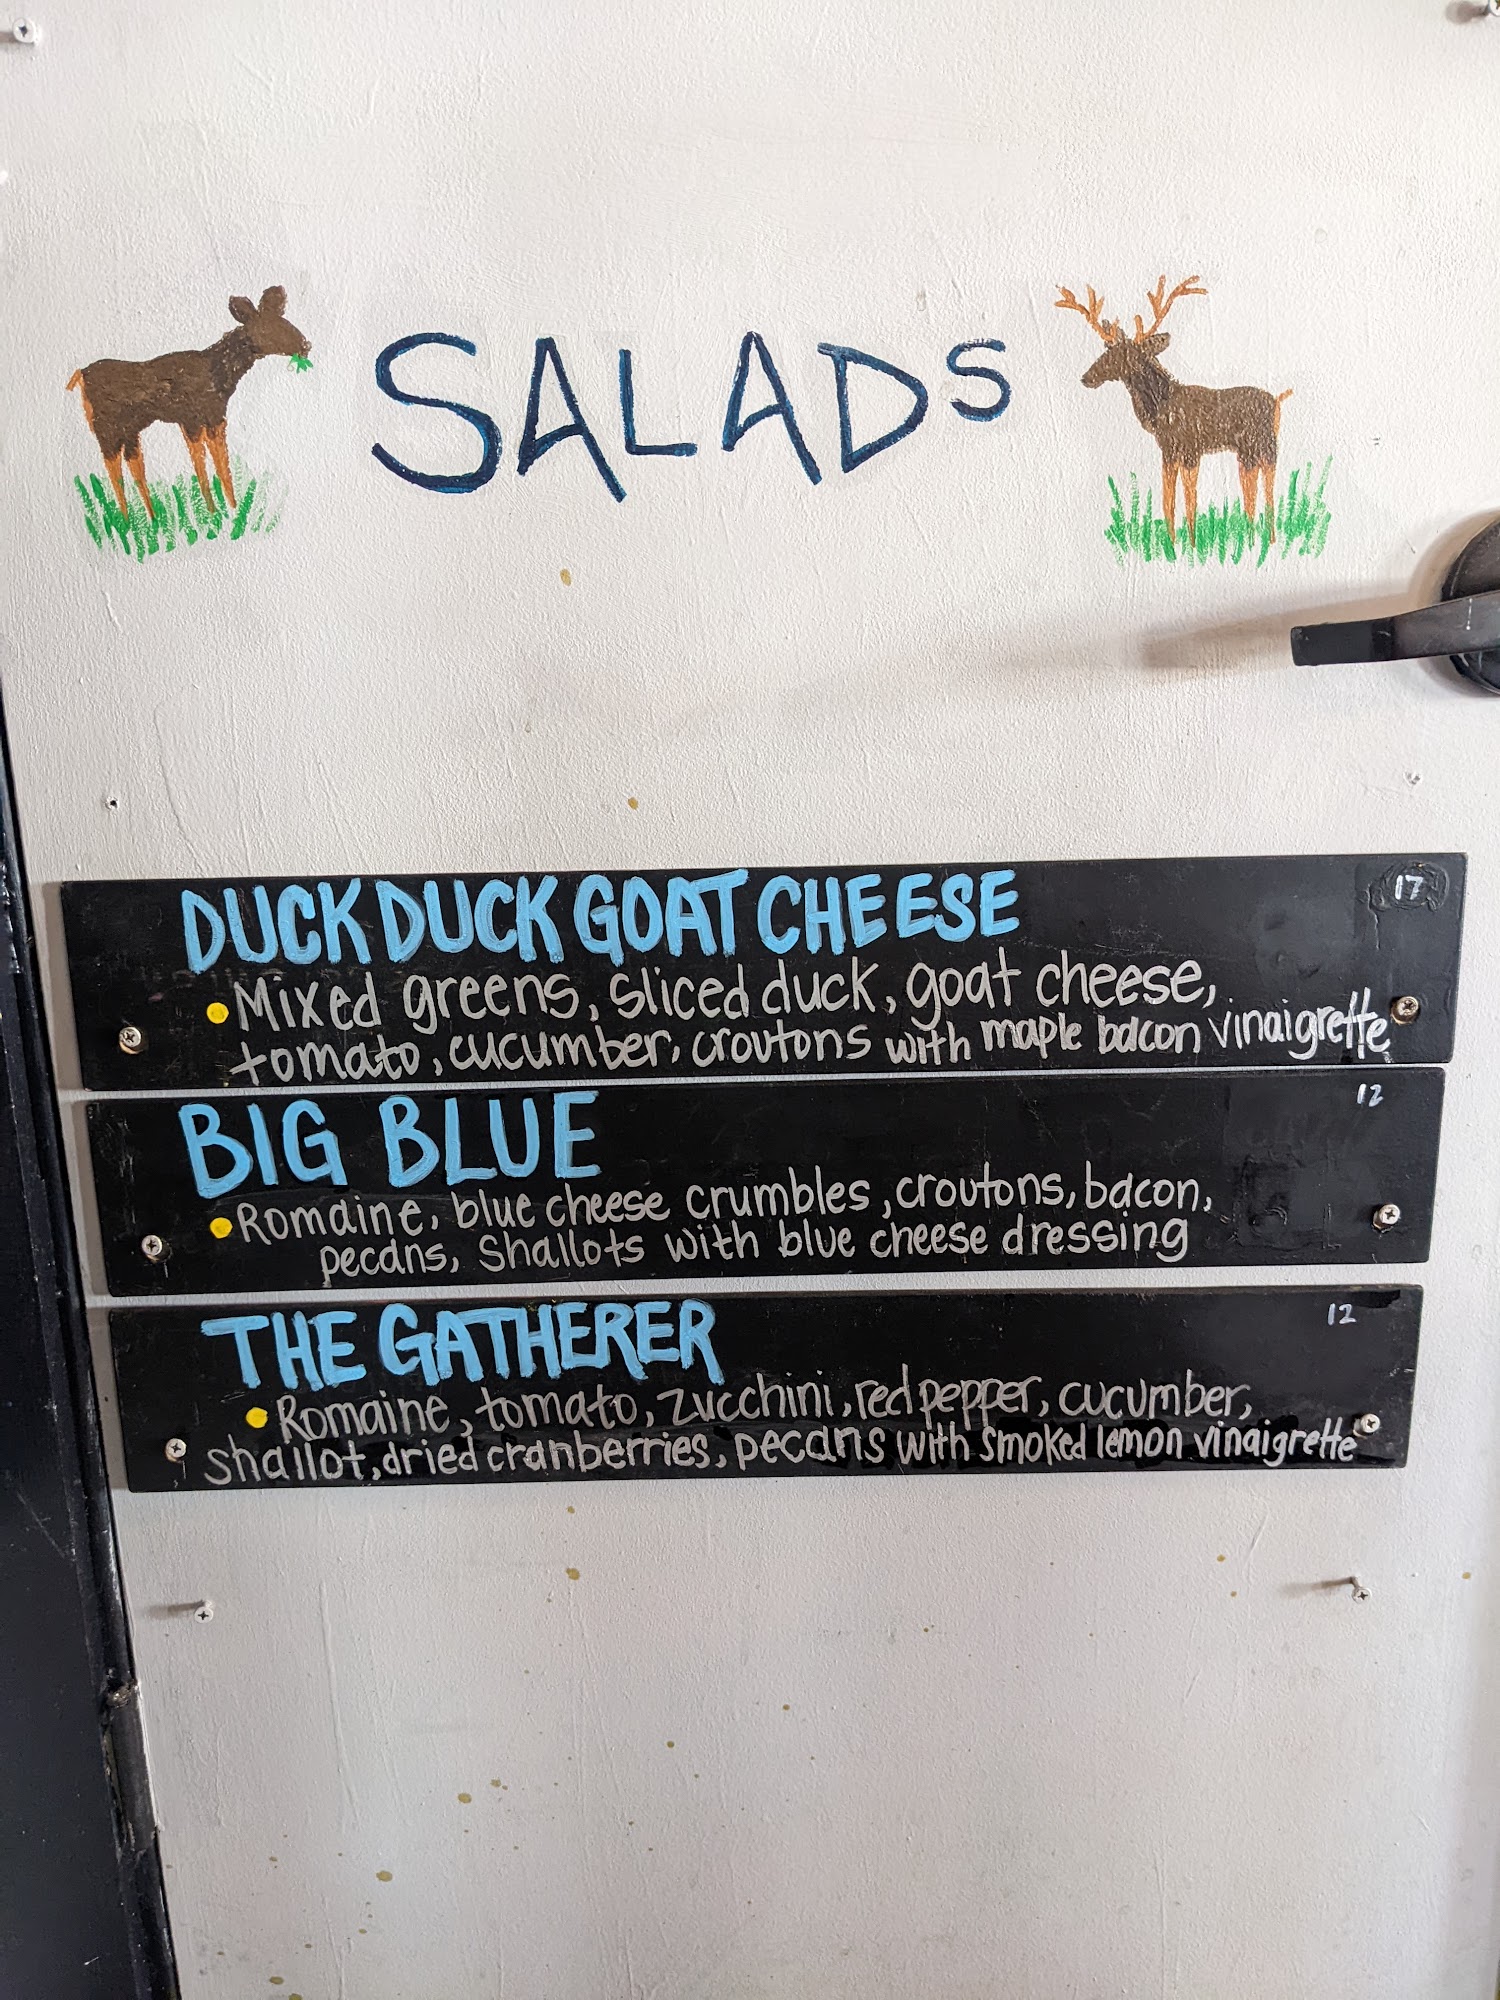 SALADS
DUCK DUCK GOAT CHEESE 17
Mixed greens, sliced duck, goat cheese,
tomato, cucumber, croutons with maple bacon vinaigrette
BIG BLUE 12
Romaine, blue cheese crumbles, croutons, bacon,
pecans, shallots with blue cheese dressing
THE GATHERER 12
Romaine, tomato, zucchini, red pepper, cucumber,
shallot, dried cranberries, pecans with smoked lemon vinaigrette